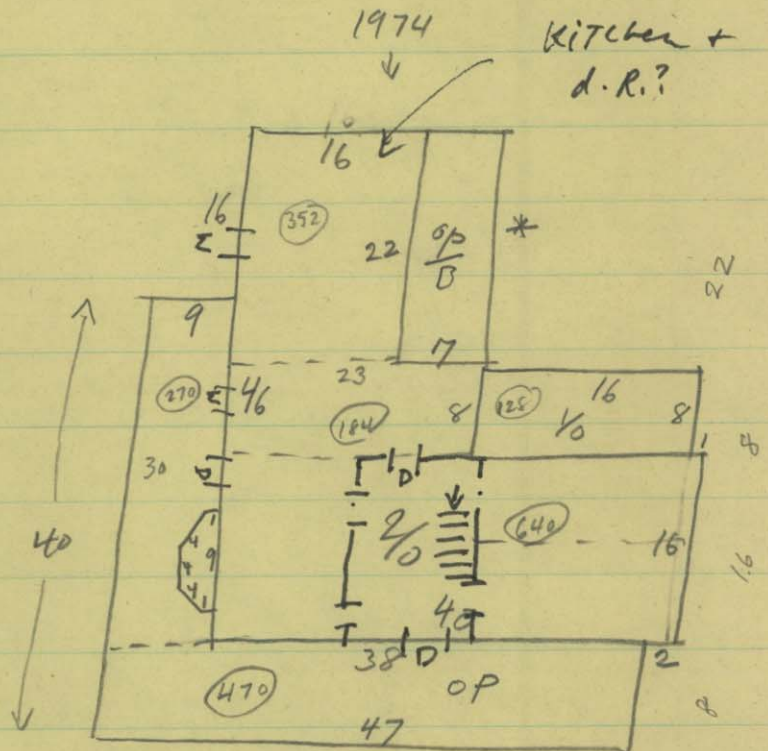 1974
Kitchen +
d.R.?
16
16
352
22
OP/B
*
22
9
7
23
270
46
184
8
128
16
1/0
8
1
8
30
D
D
40
2/0
640
16
16
4
9
4
40
38
D
2
OP
470
47
8